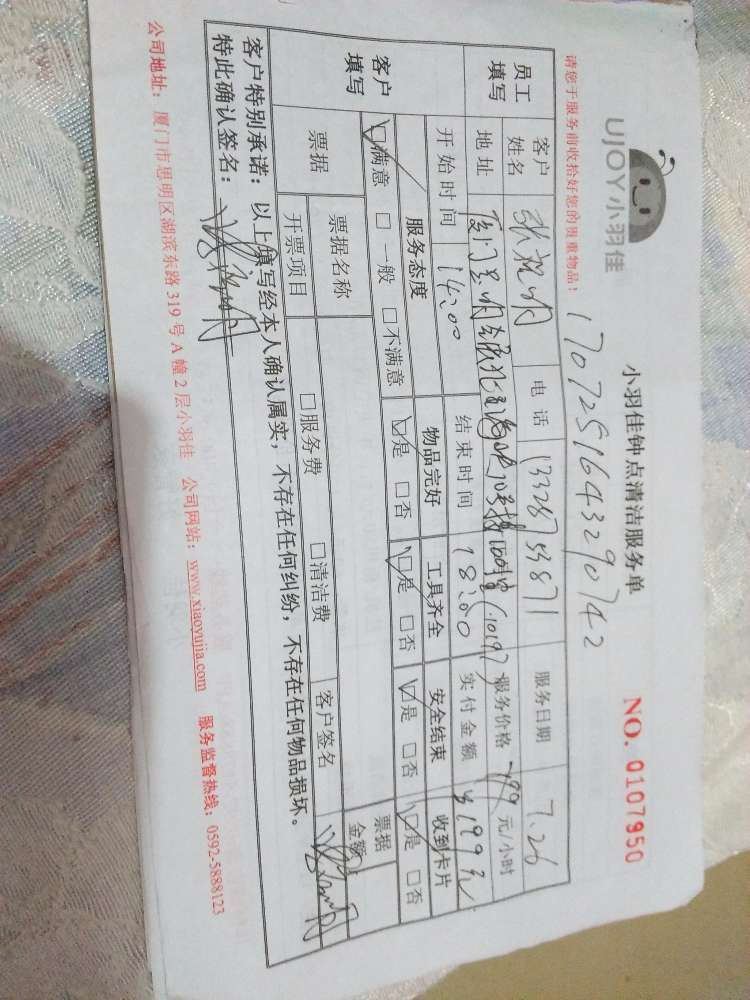 UJOY小羽佳
小羽佳钟点清洁服务单
NO. 0107950
请您于服务前收拾好您的贵重物品！
1707251643290742
员工填写 客户姓名 电话 13328753871 服务日期 7.26
地址 服务价格 元/小时
开始时间 14:00 结束时间 18:00 实付金额 ¥199元
客户填写 服务态度 物品完好 工具齐全 安全结束 收到卡片
☑满意 □一般 □不满意 ☑是 □否 ☑是 □否 ☑是 □否 ☑是 □否
票据 票据名称 票据金额
开票项目 □服务费 □清洁费 客户签名
客户特别承诺：以上填写经本人确认属实，不存在任何纠纷，不存在任何物品损坏。
特此确认签名：
公司地址：厦门市思明区湖滨东路319号A幢2层小羽佳 公司网站：www.xiaoyujia.com 服务监督热线：0592-5888123